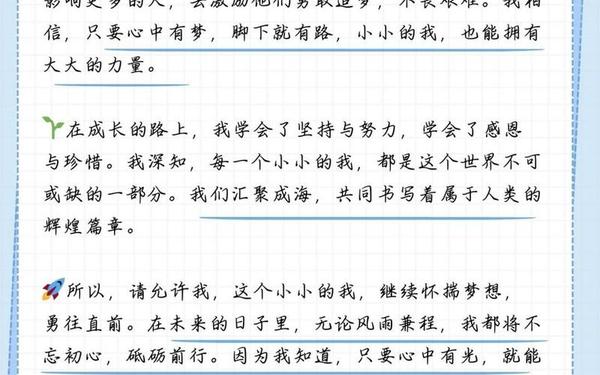 影响更多的人，去激励他们勇敢追梦，不畏艰难。我相
信，只要心中有梦，脚下就有路，小小的我，也能拥有
大大的力量。
🌱在成长的路上，我学会了坚持与努力，学会了感恩
与珍惜。我深知，每一个小小的我，都是这个世界不可
或缺的一部分。我们汇聚成海，共同书写着属于人类的
辉煌篇章。
🚀所以，请允许我，这个小小的我，继续怀揣梦想，
勇往直前。在未来的日子里，无论风雨兼程，我都将不
忘初心，砥砺前行。因为我知道，只要心中有光，就能